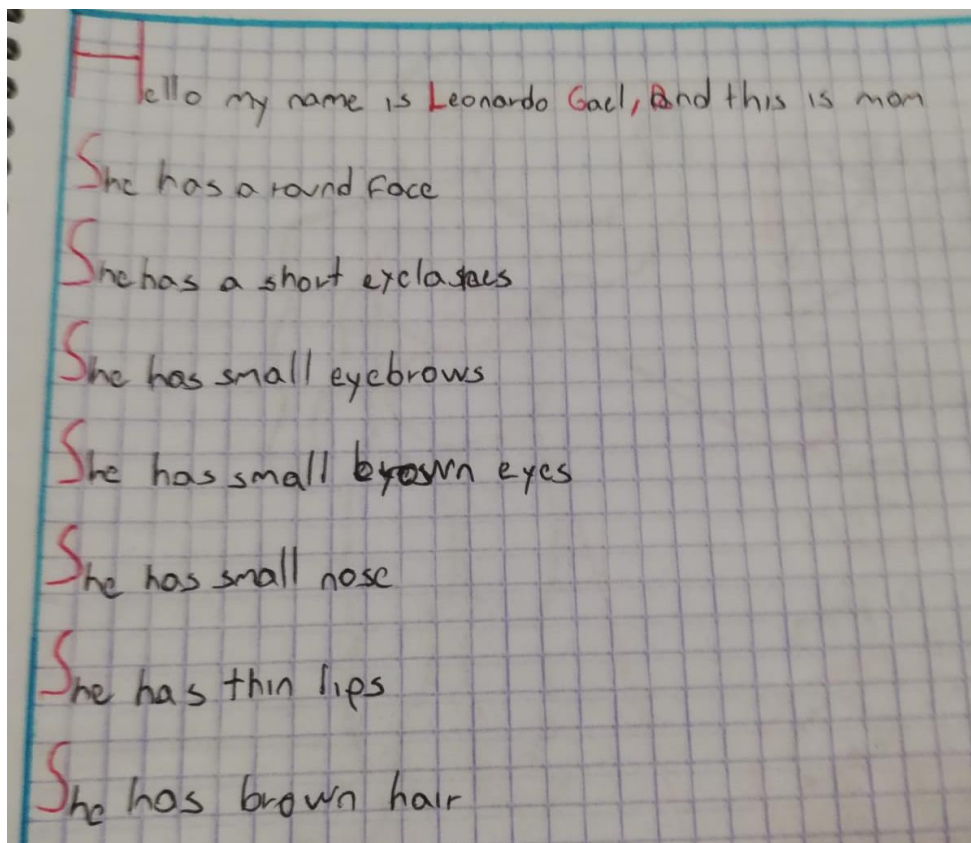 Hello my name is Leonardo Gael, And this is mom
She has a round face
She has a short
She has small eyebrows
She has small brown eyes
She has small nose
She has thin lips
She has brown hair